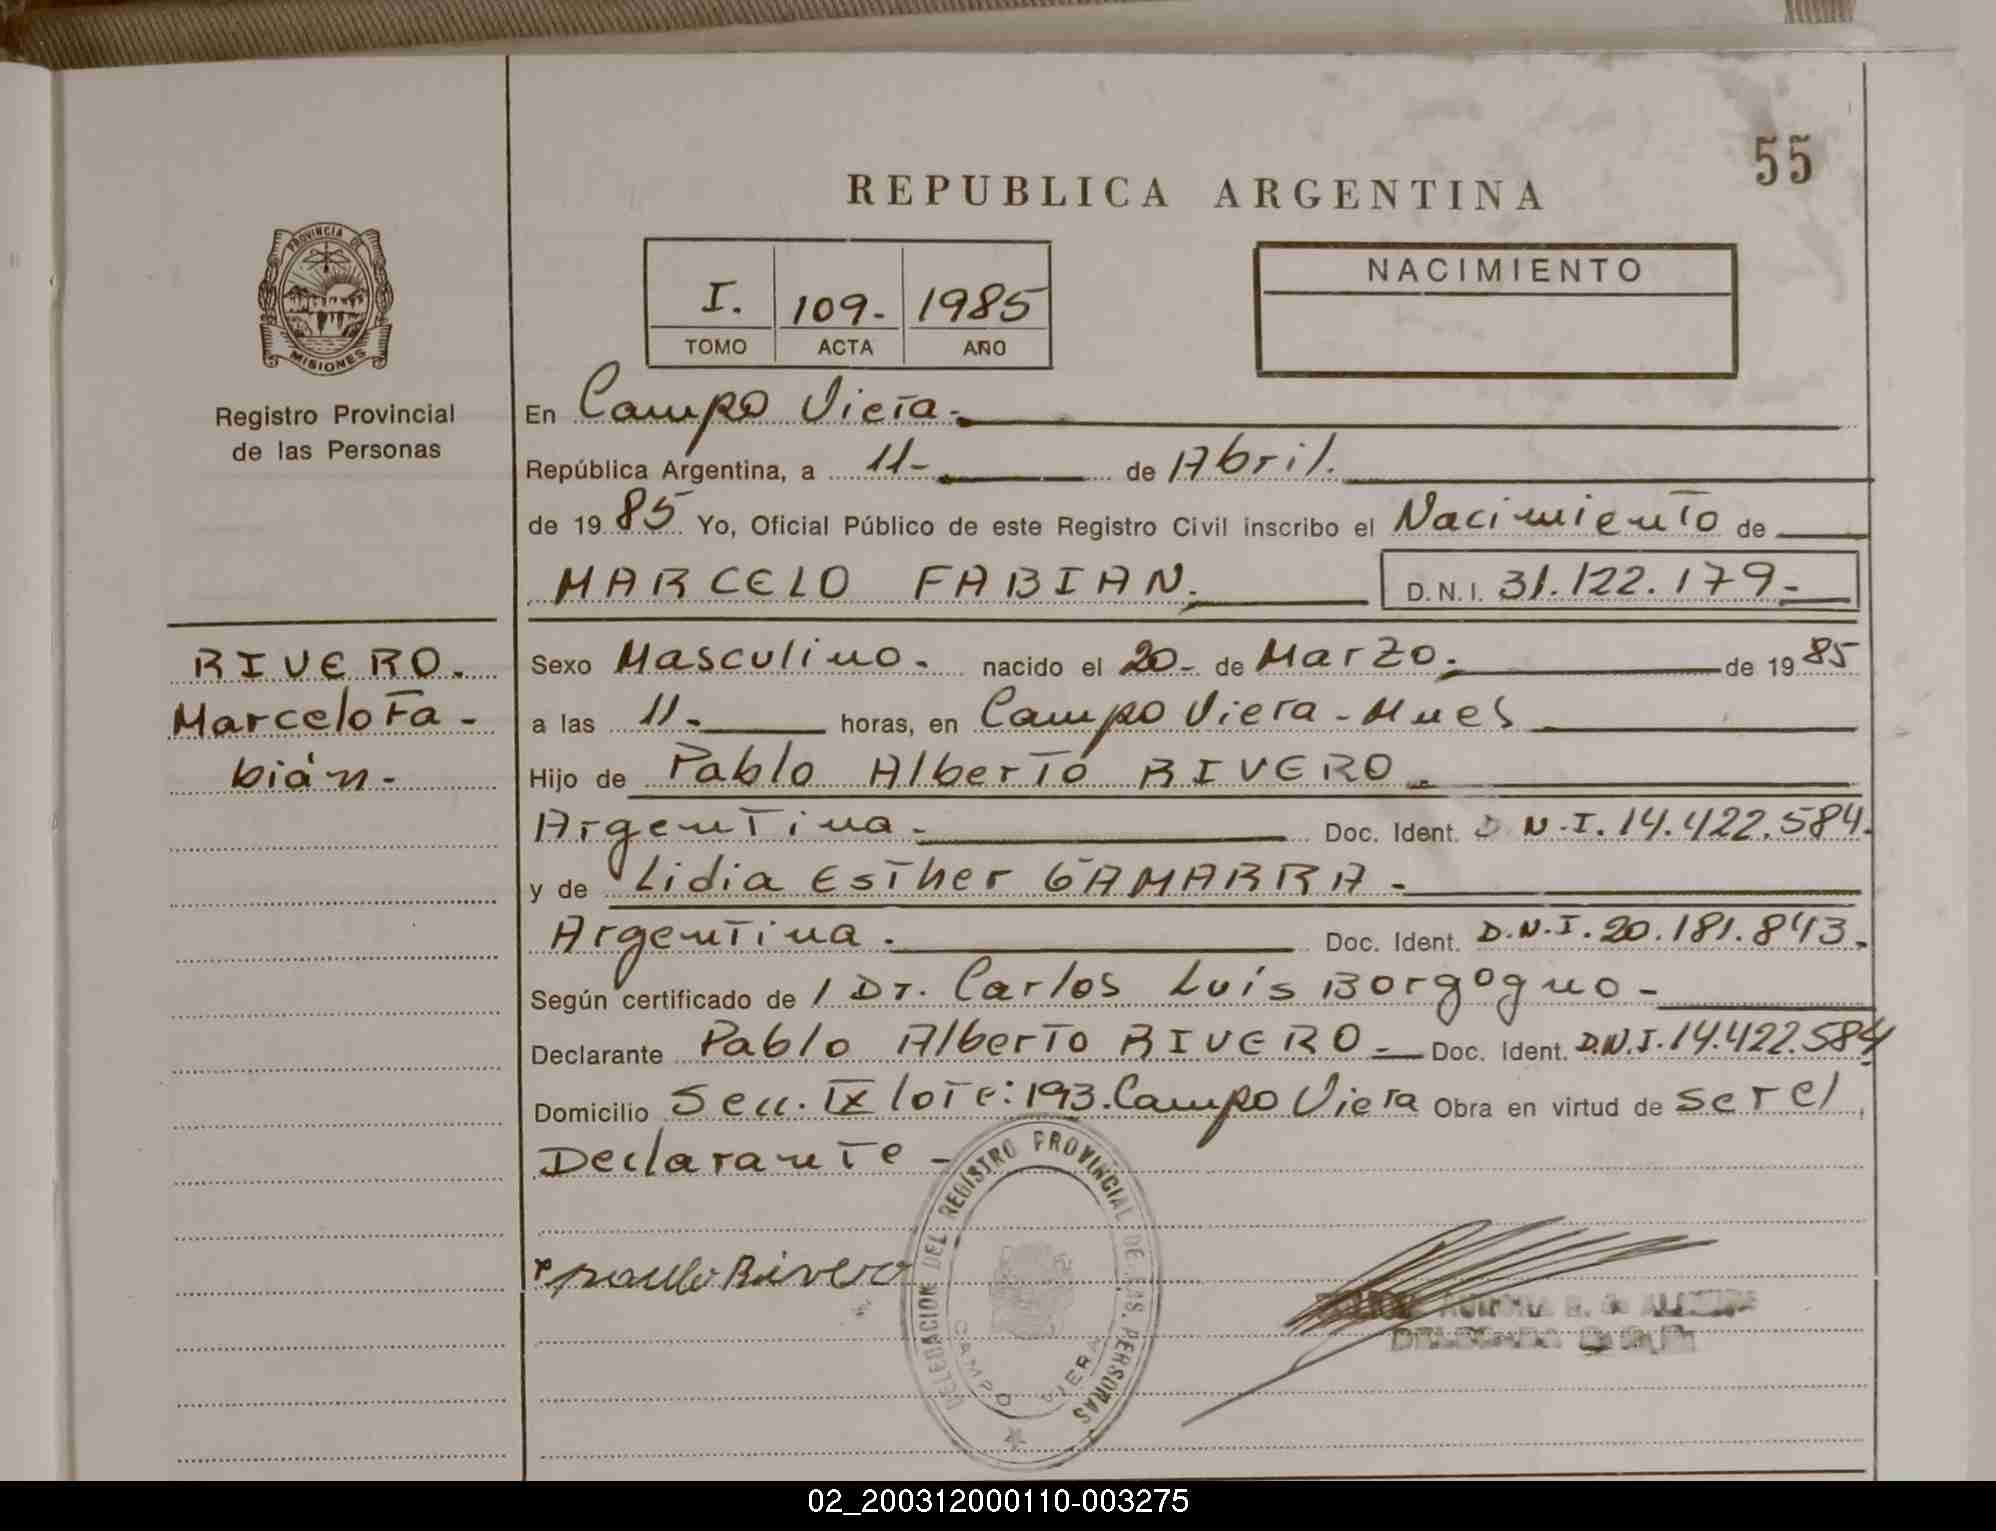 55
REPUBLICA ARGENTINA
PROVINCIA DE
MISIONES
Registro Provincial
de las Personas
I. 109- 1985
TOMO ACTA AÑO
NACIMIENTO
En Campo Viera.
República Argentina, a 11- de Abril.
de 1985 Yo, Oficial Público de este Registro Civil inscribo el Nacimiento de
MARCELO FABIAN. D.N.I. 31.122.179-
RIVERO.
Marcelo Fa-
bián-
Sexo Masculino. nacido el 20- de Marzo. de 1985
a las 11. horas, en Campo Viera - Mnes
Hijo de Pablo Alberto RIVERO.
Argentina. Doc. Ident. D.N.I. 14.422.584.
y de Lidia Esther GAMARRA-
Argentina. Doc. Ident. D.N.I. 20.181.843.
Según certificado de / Dr. Carlos Luis Borgogno-
Declarante Pablo Alberto RIVERO- Doc. Ident. D.N.I. 14.422.584
Domicilio Secc. IX lote: 193. Campo Viera Obra en virtud de ser el
Declarante-
DELEGACION DEL REGISTRO PROVINCIAL DE LAS PERSONAS
CAMPO VIERA
Rivero
AURORA B. de
DELEGADA
02_200312000110-003275